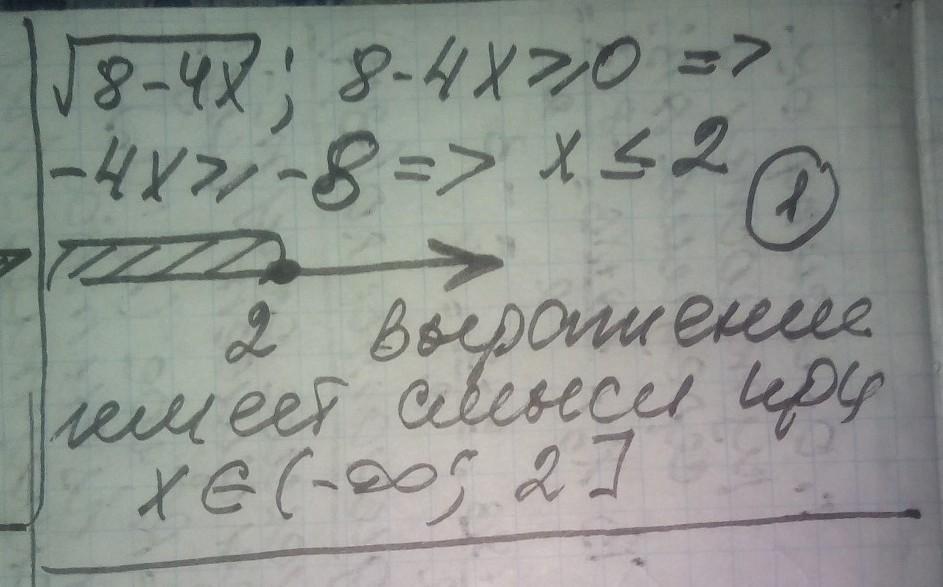 √8-4x; 8-4x≥0 =>
-4x≥-8 => x≤2
1
2 выражение
имеет смысл при
x∈(-∞; 2]